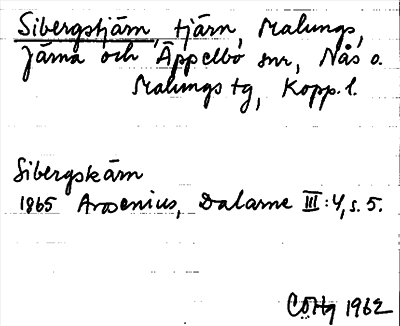 Sibergstjärn, tjärn, Malungs,
Järna och Äppelbo snr, Nås o.
Malungs tg, Kopp. l.
Sibergskärn
1865 Arosenius, Dalarne III:4, s. 5.
1962